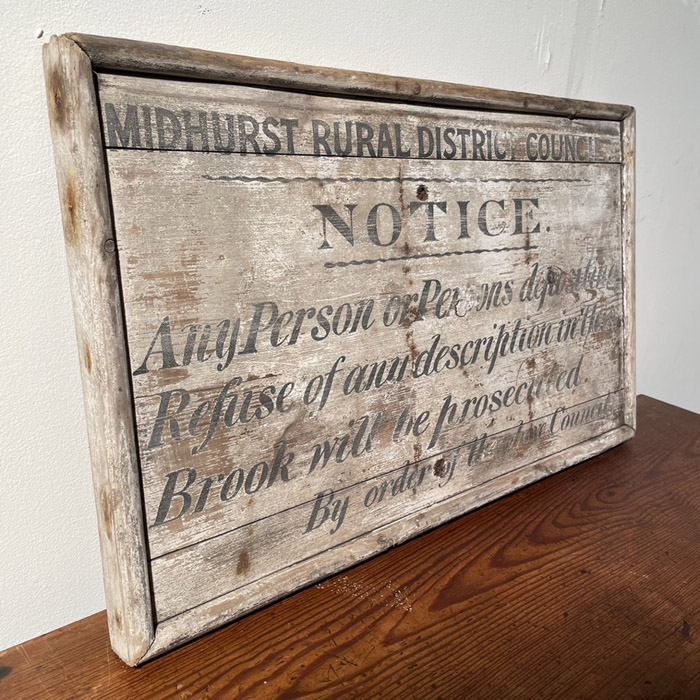 MIDHURST RURAL DISTRICT COUNCIL
NOTICE.
Any Person or Persons depositing
Refuse of any description in the
Brook will be prosecuted.
By order of the above Council